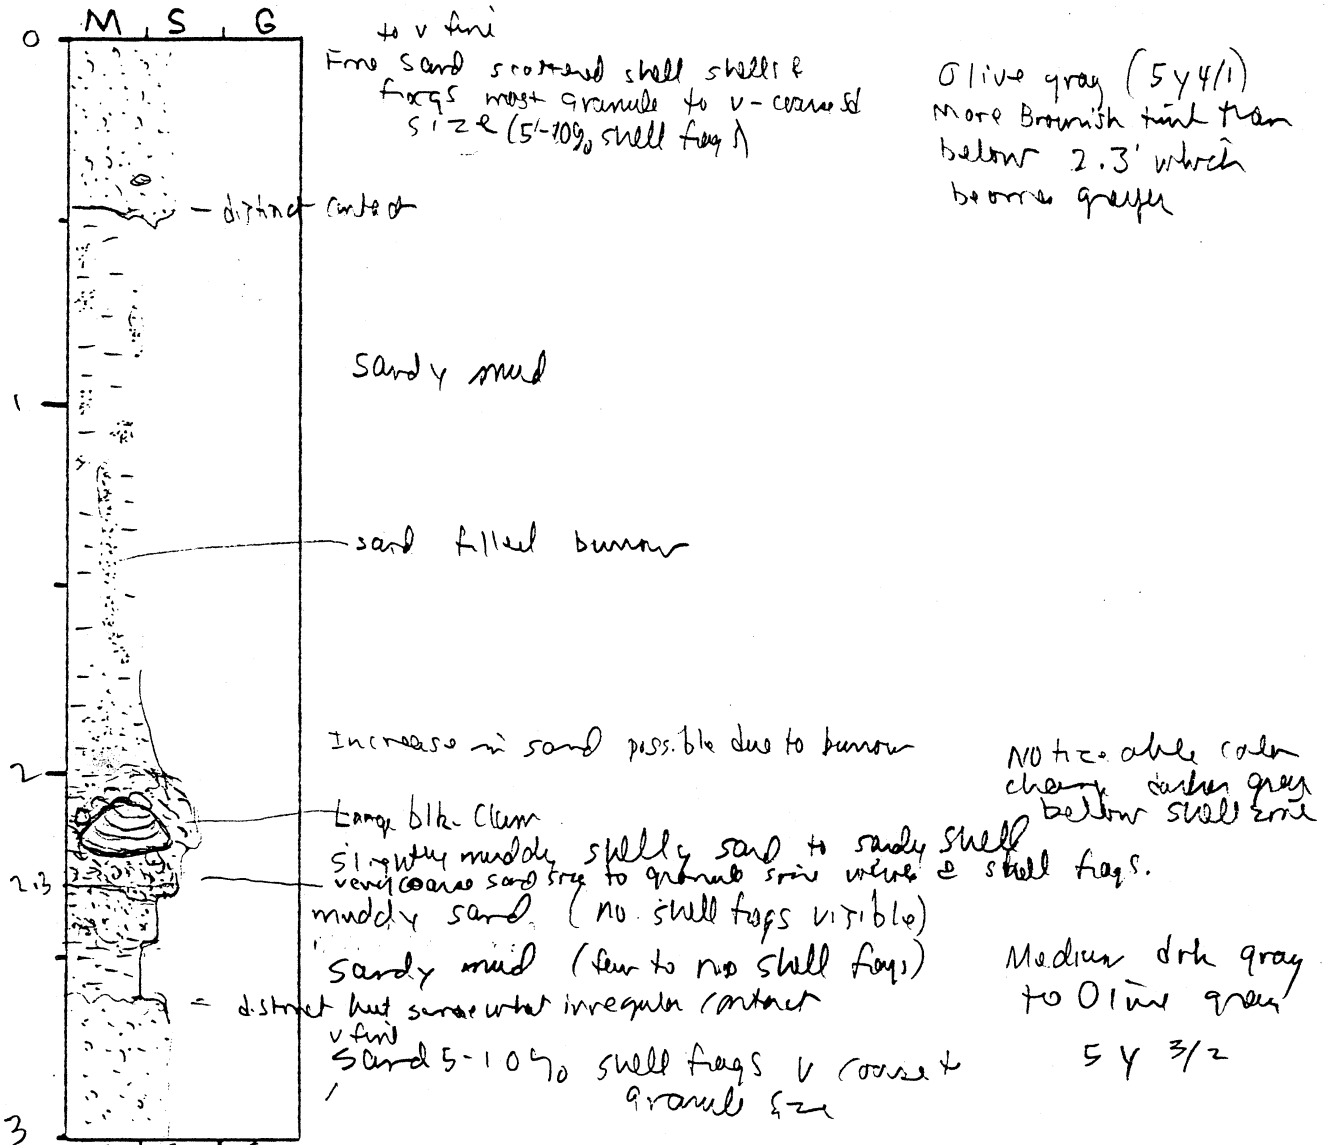 M S G
0
to v fine
Fine sand scattered shell shells &
frags most granule to v-coarse sd
size (5-10% shell frags)
Olive gray (5y4/1)
More Brownish tint than
below 2.3' which
becomes grayer
- distinct contact
Sandy mud
1
sand filled burrow
Increase in sand possible due to burrow
2
Noticeable color
change darker gray
below shell zone
Large blk. Clam
Slightly muddy shelly sand to sandy shell
2.3
very coarse sand size to granule size valves & shell frags.
muddy sand (no shell frags visible)
Sandy mud (few to no shell frags)
Medium drk gray
to Olive gray
5 Y 3/2
= distinct but somewhat irregular contact
v fine
Sand 5-10% shell frags v coarse to
granule size
3